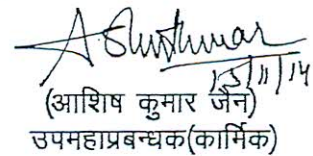 13/11/14
(आशिष कुमार जैन)
उपमहाप्रबन्धक(कार्मिक)